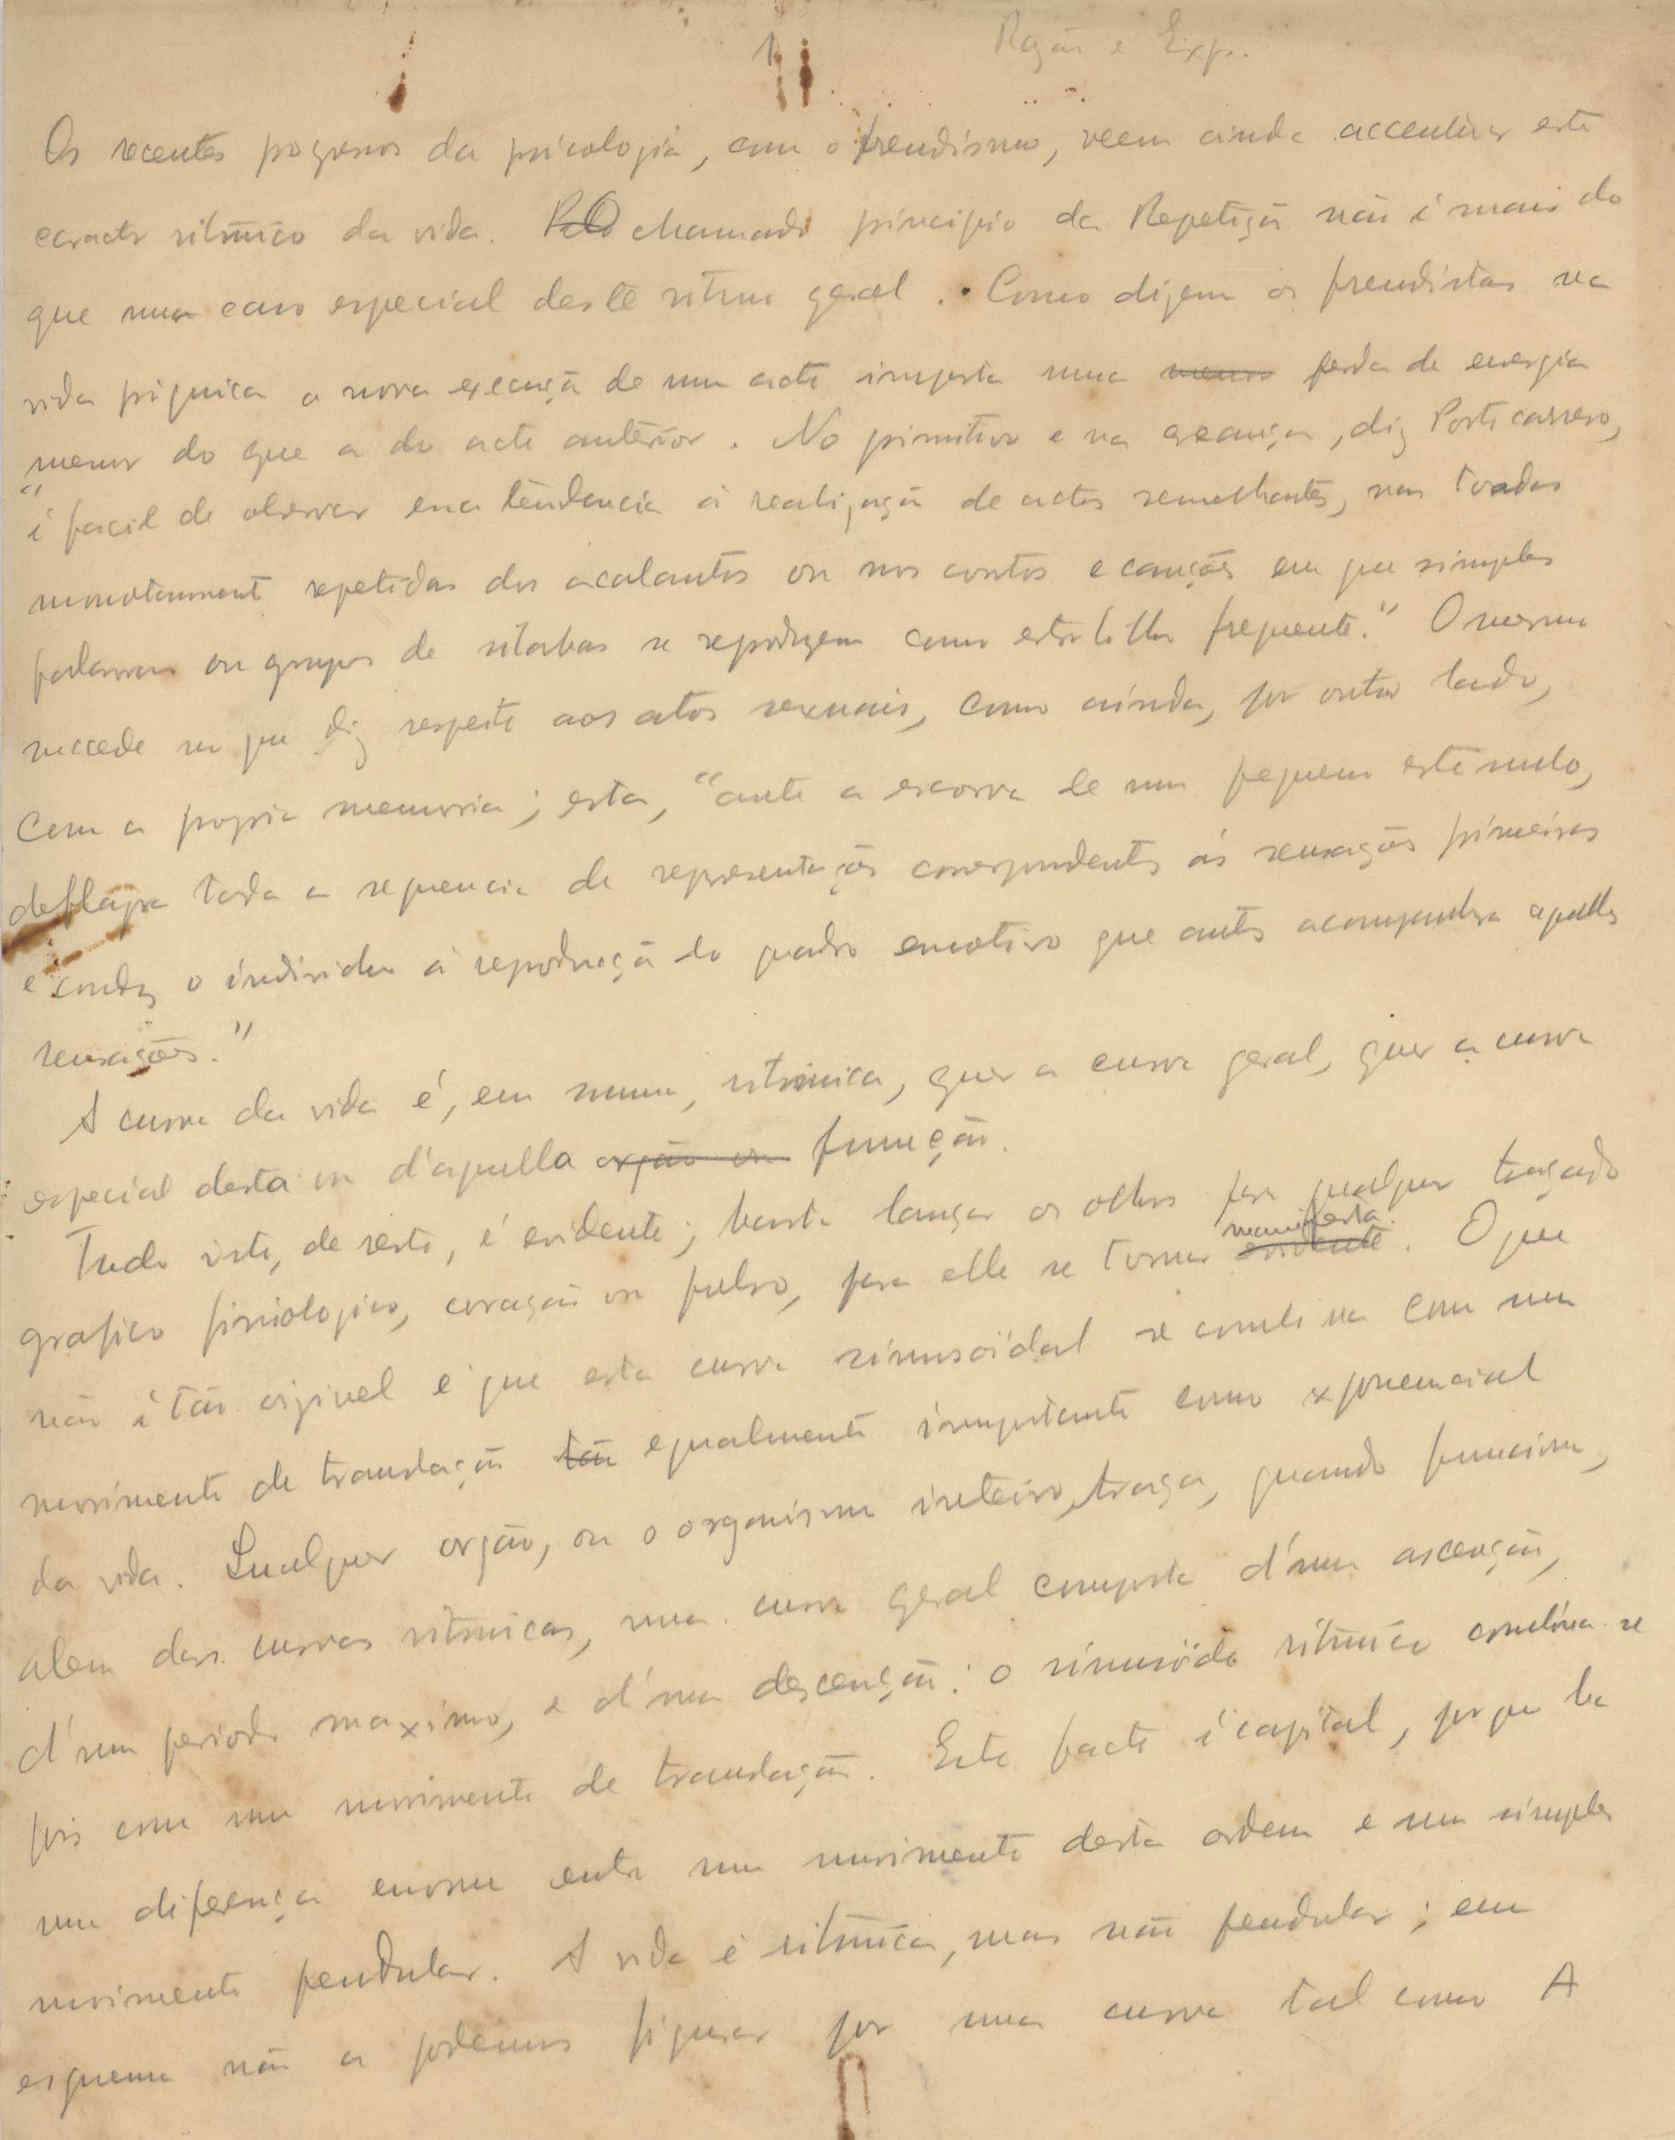 1
Razão e Exp.
Os recentes progressos da psicologia, com o freudismo, veem ainda accentuar este
caracter ritmico da vida. O chamado principio da Repetição não é mais do
que um caso especial deste ritmo geral. Como dizem os freudistas na
vida psiquica a nova execução de um acto importa uma menos perda de energia
menor do que a do acto anterior. No primitivo e na creança, diz Porto carrero,
"é facil de observar essa tendencia á realização de actos semelhantes, nas toadas
monotonamente repetidas dos acalantos ou nos contos e canções em que simples
palavras ou grupos de silabas se reproduzem como estribilho frequente." O mesmo
succede no que diz respeito aos atos sexuais, como ainda, por outro lado,
com a propria memoria; esta, "ante a escorva de um pequeno estimulo,
deflagra toda a sequencia de representações correspondentes ás sensações primeiras
e conduz o individuo á reprodução do quadro emotivo que antes acompanhara aquellas
sensações."
A curva da vida é, em suma, ritmica, quer a curva geral, quer a curva
especial desta ou d'aquella orgão ou funcção.
Tudo isto, de resto, é evidente; basta lançar os olhos para qualquer traçado
grafico fisiologico, coração ou pulso, para elle se tornar evidente manifesta. O que
não é tão visivel é que esta curva sinusoïdal se combina com um
movimento de translação tão egualmente importante como exponencial
da vida. Qualquer orgão, ou o organismo inteiro, traça, quando funciona,
alem das curvas ritmicas, uma curva geral composta d'uma ascenção,
d'um periodo maximo, e d'uma descenção: o sinusoïde ritmico combina-se
pois com um movimento de translação. Este facto é capital, porque ha
uma diferença enorme entre um movimento desta ordem e um simples
movimento pendular. A vida é ritmica, mas não pendular; em
esquema não a podemos figurar por uma curva tal como A